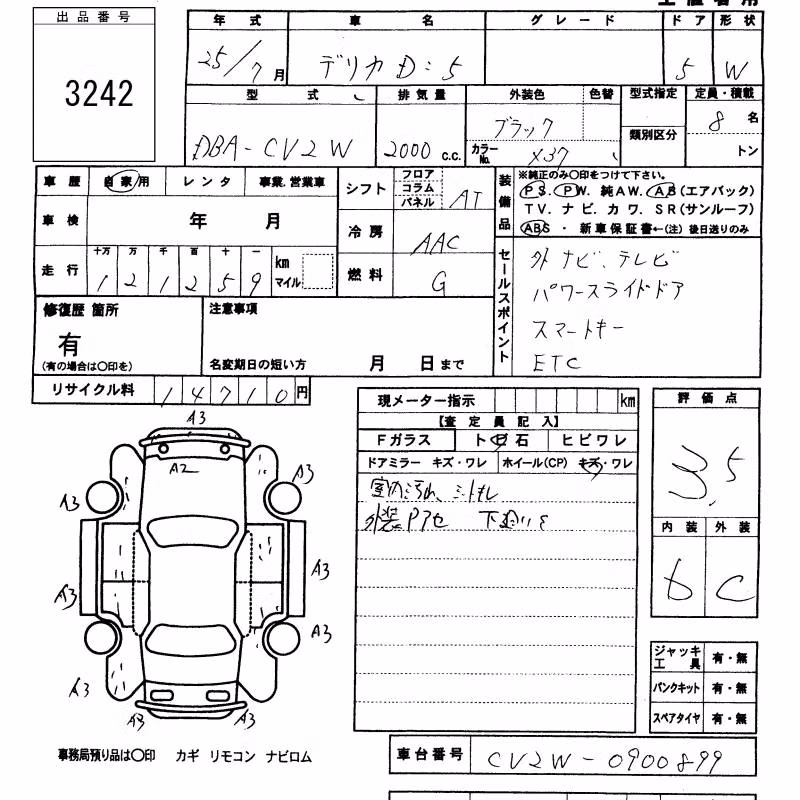 出品番号
3242
年式 車名 グレード ドア 形状
25/7月 デリカD:5 5 W
型式 排気量 外装色 色替 型式指定 定員・積載
類別区分
DBA-CV2W 2000 C.C. ブラック 8名
カラーNo. X37 トン
車歴 自家用 レンタ 事業.営業車
シフト フロア コラム パネル AT
装備品 ※純正のみ〇印をつけて下さい。
P S. P W. 純AW. A B(エアバック)
TV. ナビ. カワ. SR(サンルーフ)
ABS ・ 新車保証書←(注) 後日送りのみ
車検 年 月
冷房 AAC
走行 十万 万 千 百 十 一
1 2 1 2 5 9 km マイル
燃料 G
セールスポイント
外ナビ、テレビ
パワースライドドア
スマートキー
ETC
修復歴 箇所
有
(有の場合は〇印を)
注意事項
名変期日の短い方 月 日まで
リサイクル料 1 4 7 1 0 円
現メーター指示 km
【査定員記入】
Fガラス トビ石 ヒビワレ
ドアミラー キズ・ワレ ホイール(CP) キズ・ワレ
室内汚れ、
外装
評価点
3.5
内装 外装
b C
A3
A2
A3
A3
A3
A3
A3
A3
A3
ジャッキ工具 有・無
パンクキット 有・無
スペアタイヤ 有・無
事務局預り品は〇印 カギ リモコン ナビロム
車台番号 CV2W-0900899